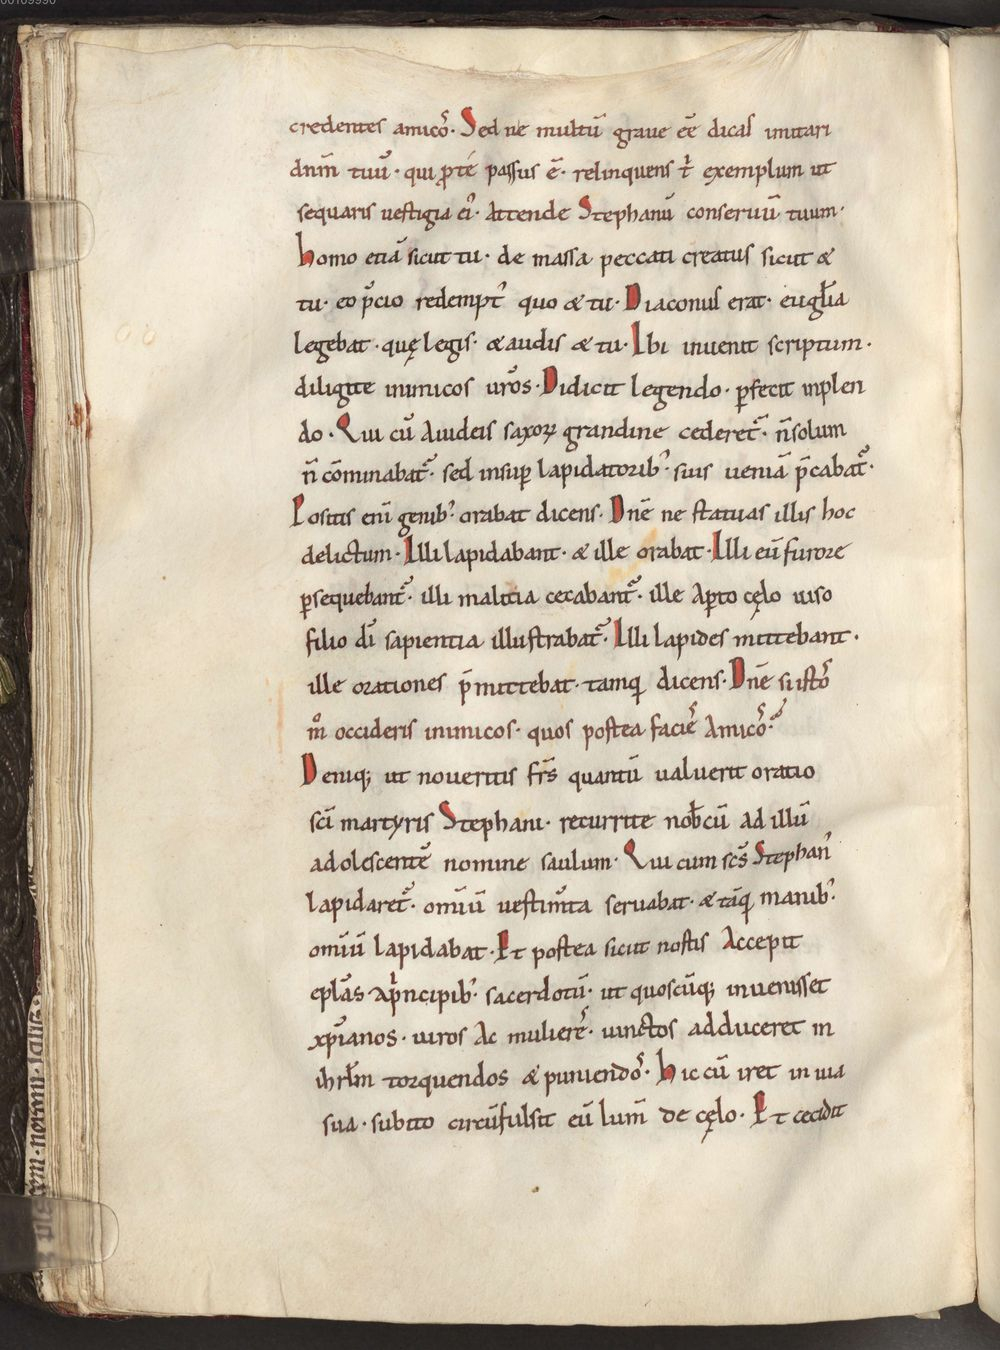 credentes amicos̄. Sed ne multū graue eē̄ dicas imitari
dnm̄ tuū. qui ꝓ te passus ē. relinquens t' exemplum ut
sequaris uestigia ei᾽. Attende Stephanū conseruū tuum.
homo etiā sicut tu. de massa peccati creatus sicut &
tu. eo p̄cio redempt᾽ quo & tu. Diaconus erat. euglīa
legebat. quę legis. & audis & tu. Ibi inuenit scriptum.
diligite inimicos ur̄os. Didicit legendo. ꝑfecit inplen
do. Qui cū a iudeis saxoꝝ grandine cederet᾽. n̄ solum
n̄ cōminabat᾽. sed insuꝑ lapidatorib᾽ suis ueniā p̄cabat᾽.
Positis eni᾽ genib᾽ orabat dicens. Dnē ne statuas illis hoc
delictum. Illi lapidabant. & ille orabat. Illi eū furore
ꝑsequebant᾽. illi malitia cecabant᾽. ille aꝑto cęlo uiso
filio dī sapientia illustrabat᾽. Illi lapides mittebant.
ille orationes p̄mittebat. tamq dicens. Dnē si istos̄
m̊ occideris inimicos. quos postea facies̄ amicos̄.
Deniq; ut noueritis fr̄s quantū ualuerit oratio
sc̄i martyris Stephani. recurrite nob̄cū ad illū
adolescentē nomine saulum. Qui cum scs̄ Stephan᾽
lapidaret᾽. omiū uestim̄ta seruabat. & tāq manib᾽
omiū lapidabat. Et postea sicut nostis accepit
epl̄as a pⁱncipib᾽ sacerdotū. ut quoscūq; inuenisset
xp̄ianos. uiros ac mulieres̄. uinctos adduceret in
ihrl̄m torquendos & puniendos̄. hic cū iret in uia
sua. subito circūfulsit eū lum̄ de cęlo. Et cecidit